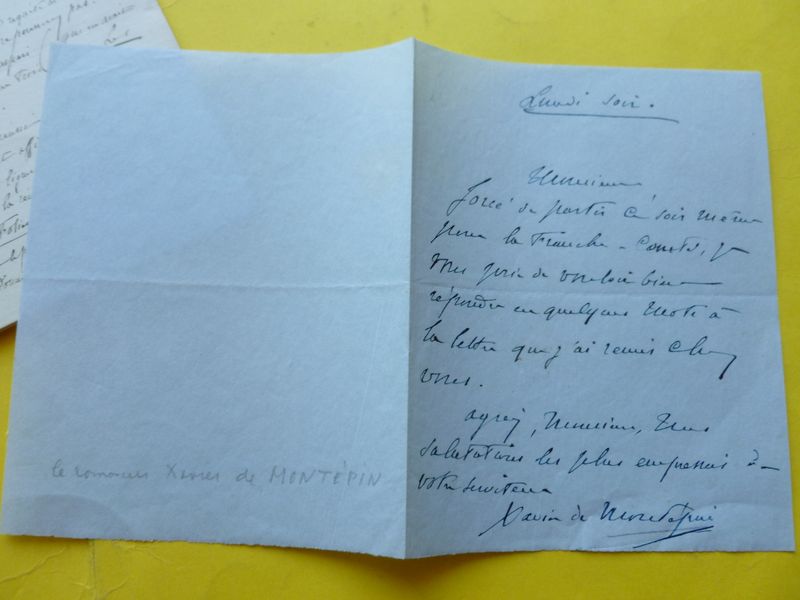 Lundi soir.
Monsieur
forcé de partir ce soir même
pour la Franche-Comté, je
vous prie de vouloir bien
répondre en quelques mots à
la lettre que j'ai remis chez
vous.
agréez, Monsieur, mes
salutations les plus empressées
votre serviteur
Xavier de Montépin
le romancier Xavier de MONTÉPIN